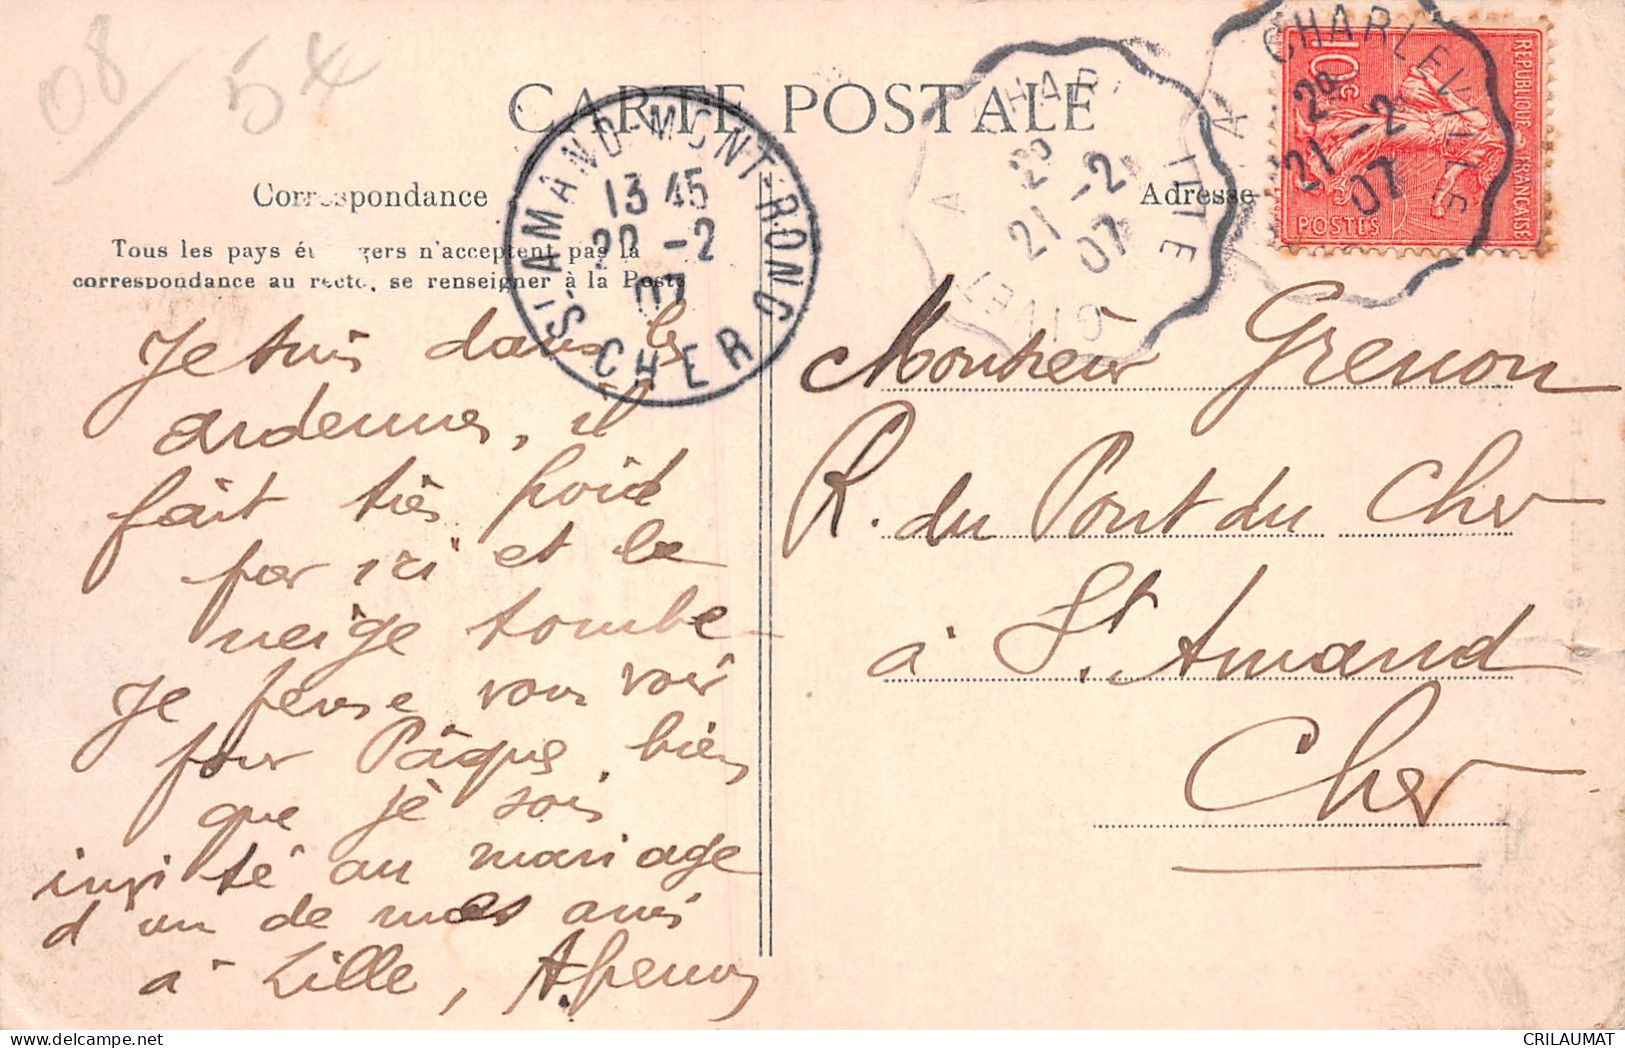 08/54
CARTE POSTALE
Correspondance
Adresse
Tous les pays étrangers n'acceptent pas la
correspondance au recto, se renseigner à la Poste
St AMAND-MONT-ROND
13 45
20 -2
07
CHER
CHARLEVILLE A GIVET
2º
21 -2
07
CHARLEVILLE A
2º
21 -2
07
REPUBLIQUE FRANÇAISE
10c
POSTES
Je suis dans les
ardennes, il
fait très froid
par ici et la
neige tombe
Je pense vous voir
pour Pâques, bien
que je sois
invité au mariage
d'un de mes amis
à Lille,
Monsieur Grenon
R. du Pont du Cher
à St. Amand
Cher
CRILAUMAT